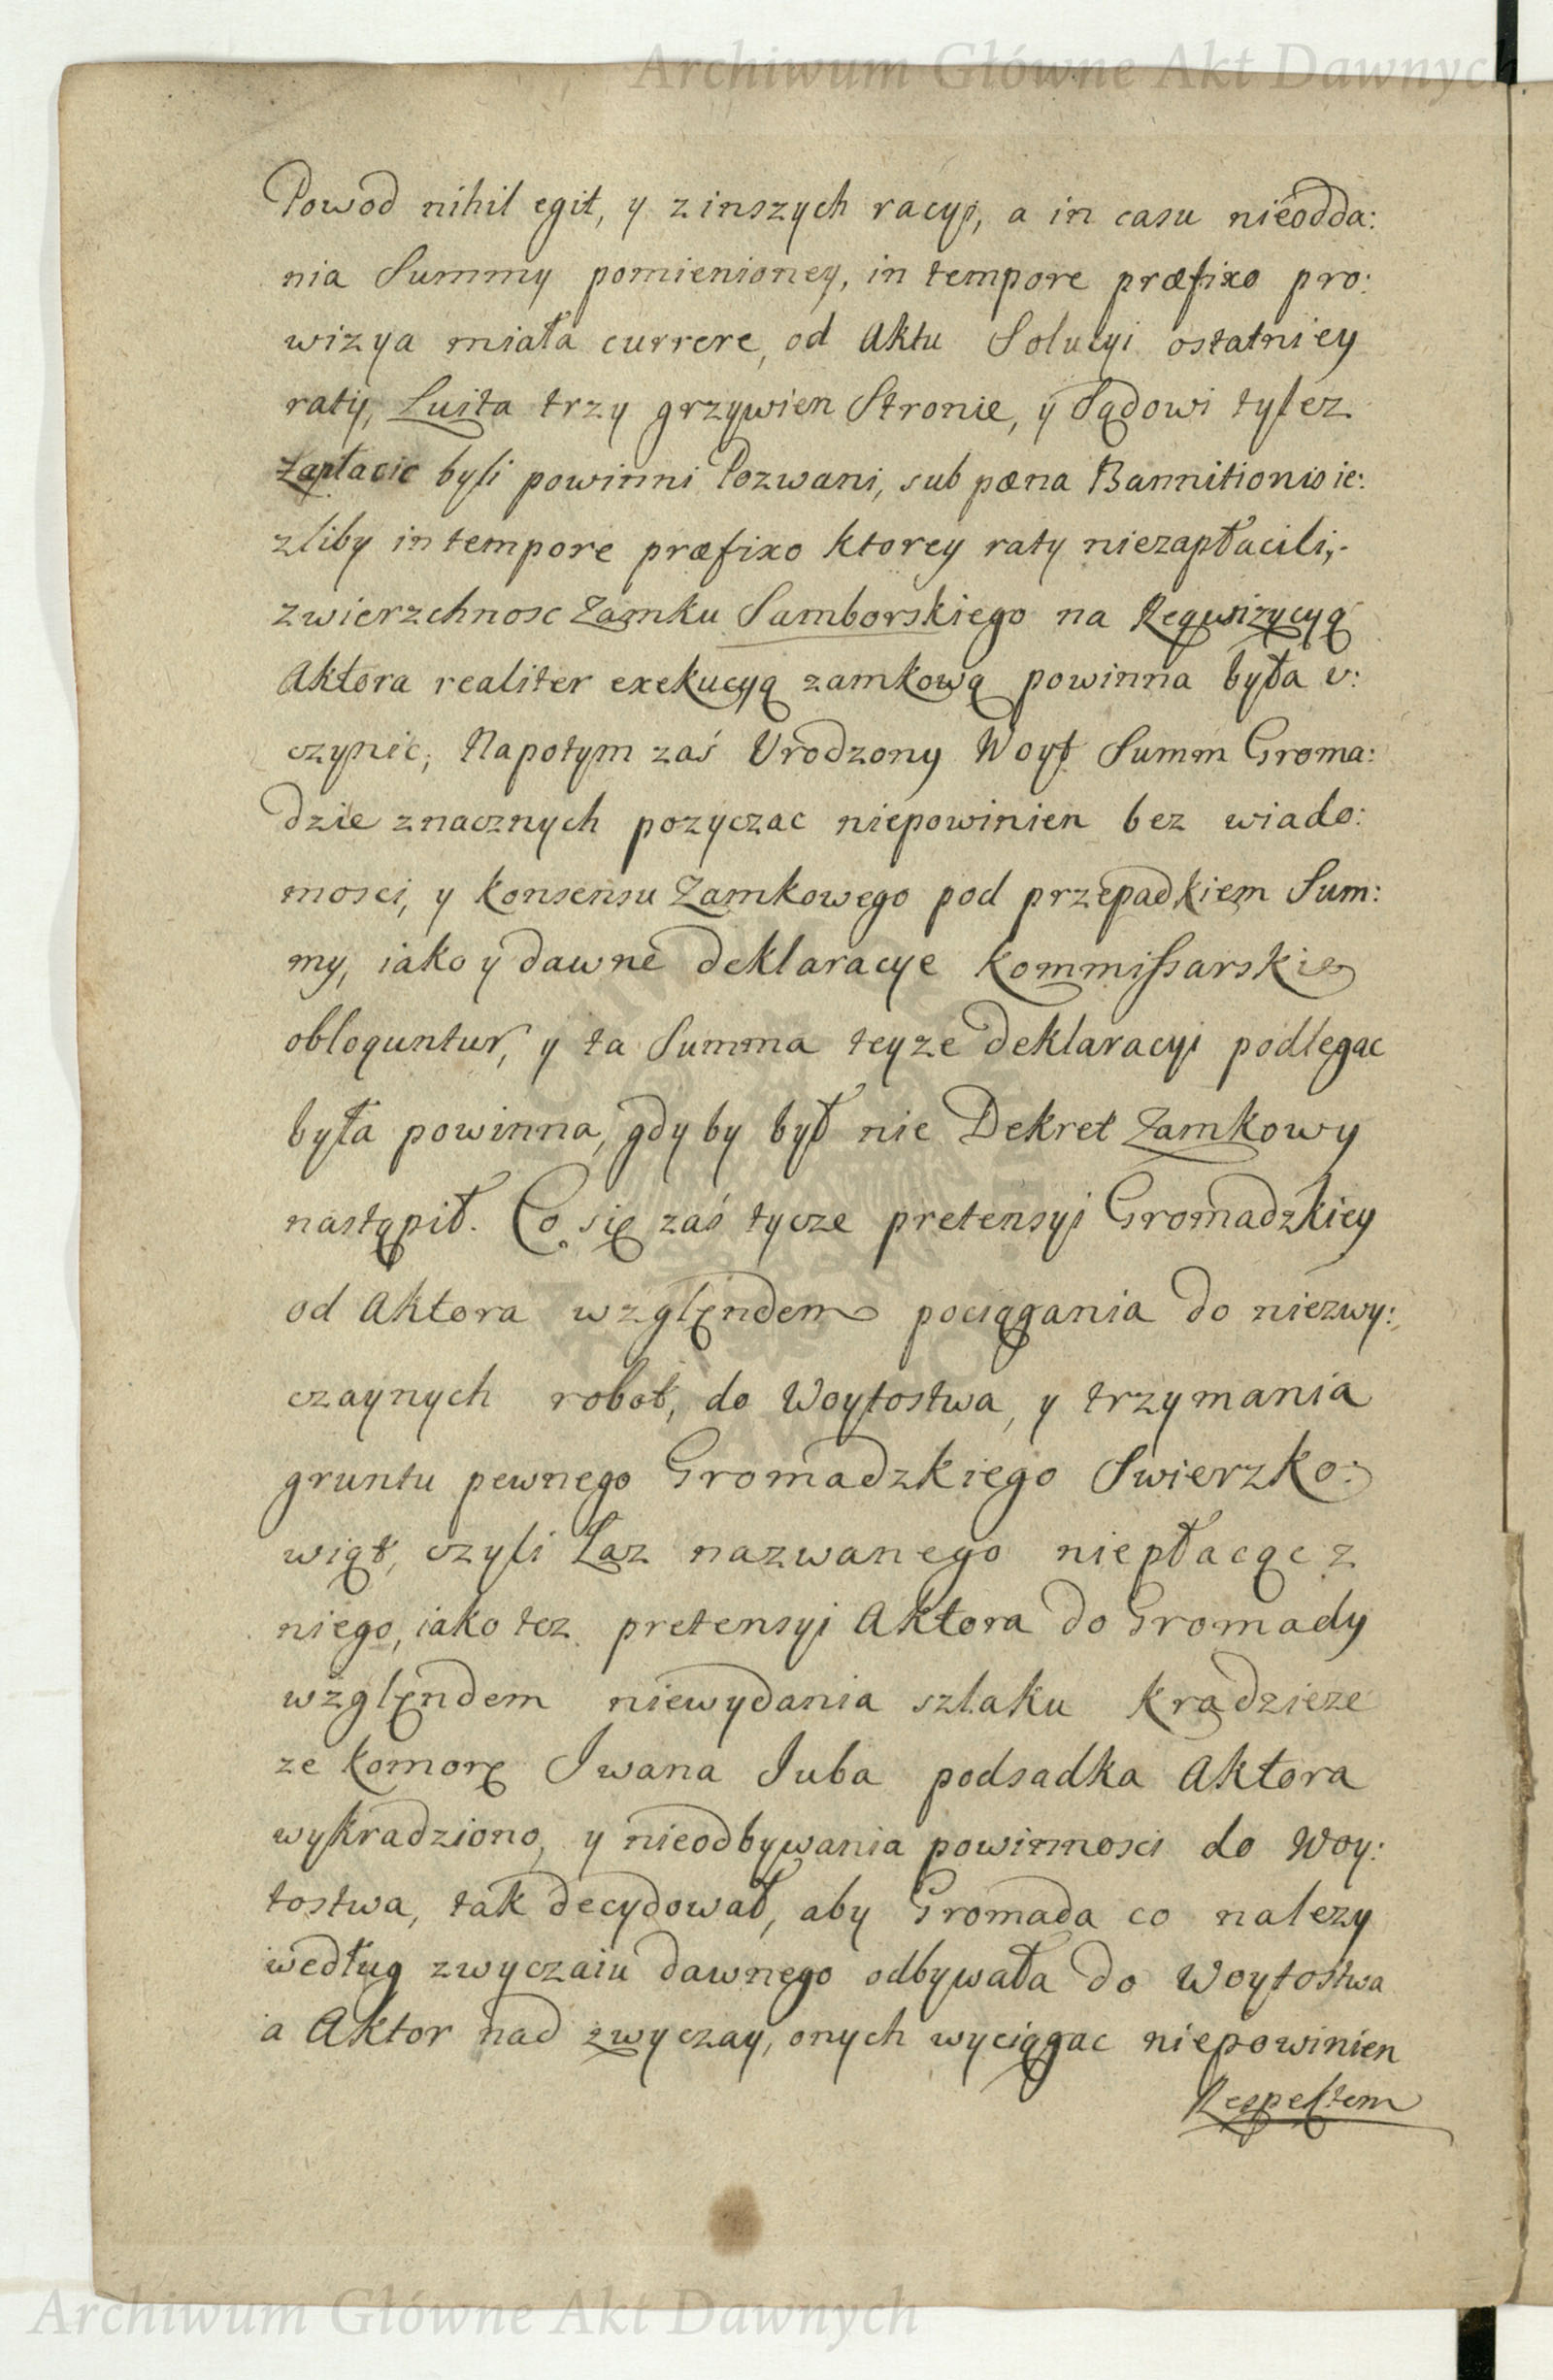 Archiwum Główne Akt Dawnych
Powod nihil egit, y z inszych racyi, a in casu nieodda:
nia Summy pomienioney, in tempore præfixo pro:
wizya miała currere, od Aktu Solucyi ostatniey
raty, Luita trzy grzywien Stronie, y Sądowi tylez
zapłacic byli powinni Pozwani, sub pœna Bannitionis ie:
zliby in tempore præfixo ktorey raty niezapłacili,
zwierzchnosc Zamku Samborskiego na Requizycyą
Aktora realiter exekucyą zamkową powinna była v:
czynic, Napotym zaś Vrodzony Woyt Summ Groma:
dzie znacznych pozyczac niepowinien bez wiado:
mosci, y konsensu Zamkowego pod przepadkiem Sum:
my, iako y dawne deklaracye kommissarskie
obloquntur, y ta Summa teyze deklaracyi podlegac
była powinna, gdy by był nie Dekret Zamkowy
nastąpił. Co się zaś tycze pretensyi Gromadzkiey
od Aktora względem pociągania do niezwy:
czaynych robot, do Woytostwa, y trzymania
gruntu pewnego Gromadzkiego Swierzko:
wiąt, czyli Łaz nazwanego niepłacąc z
niego, iako tez pretensyi Aktora do Gromady
względem niewydania szlaku kradzieze
ze komorę Jwana Juba podsadka Aktora
wykradziono, y nieodbywania powinnosci do Woy:
tostwa, tak decydował, aby Gromada co nalezy
według zwyczaiu dawnego odbywała do Woytostwa
a Aktor nad zwyczay, onych wyciągac niepowinien
Respektem
Archiwum Główne Akt Dawnych